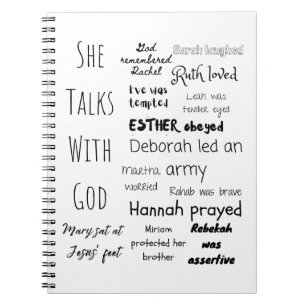 She
Talks
With
God
God
remembered
Rachel
Sarah laughed
Ruth loved
Eve was
tempted
Leah was
tender eyed
ESTHER obeyed
Deborah led an
army
martha
worried
Rahab was brave
Hannah prayed
Mary sat at
Jesus' feet
Miriam
protected her
brother
Rebekah
was
assertive